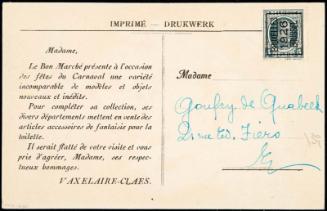 IMPRIMÉ – DRUKWERK
1926
Madame,
Le Bon Marché présente à l'occasion
des fêtes du Carnaval une variété
incomparable de modèles et objets
nouveaux et inédits.
Pour compléter sa collection, ses
divers départements mettent en vente des
articles accessoires de fantaisie pour la
toilette.
Il serait flatté de votre visite et vous
prie d'agréer, Madame, ses respec-
tueux hommages.
VAXELAIRE-CLAES.
Madame
de